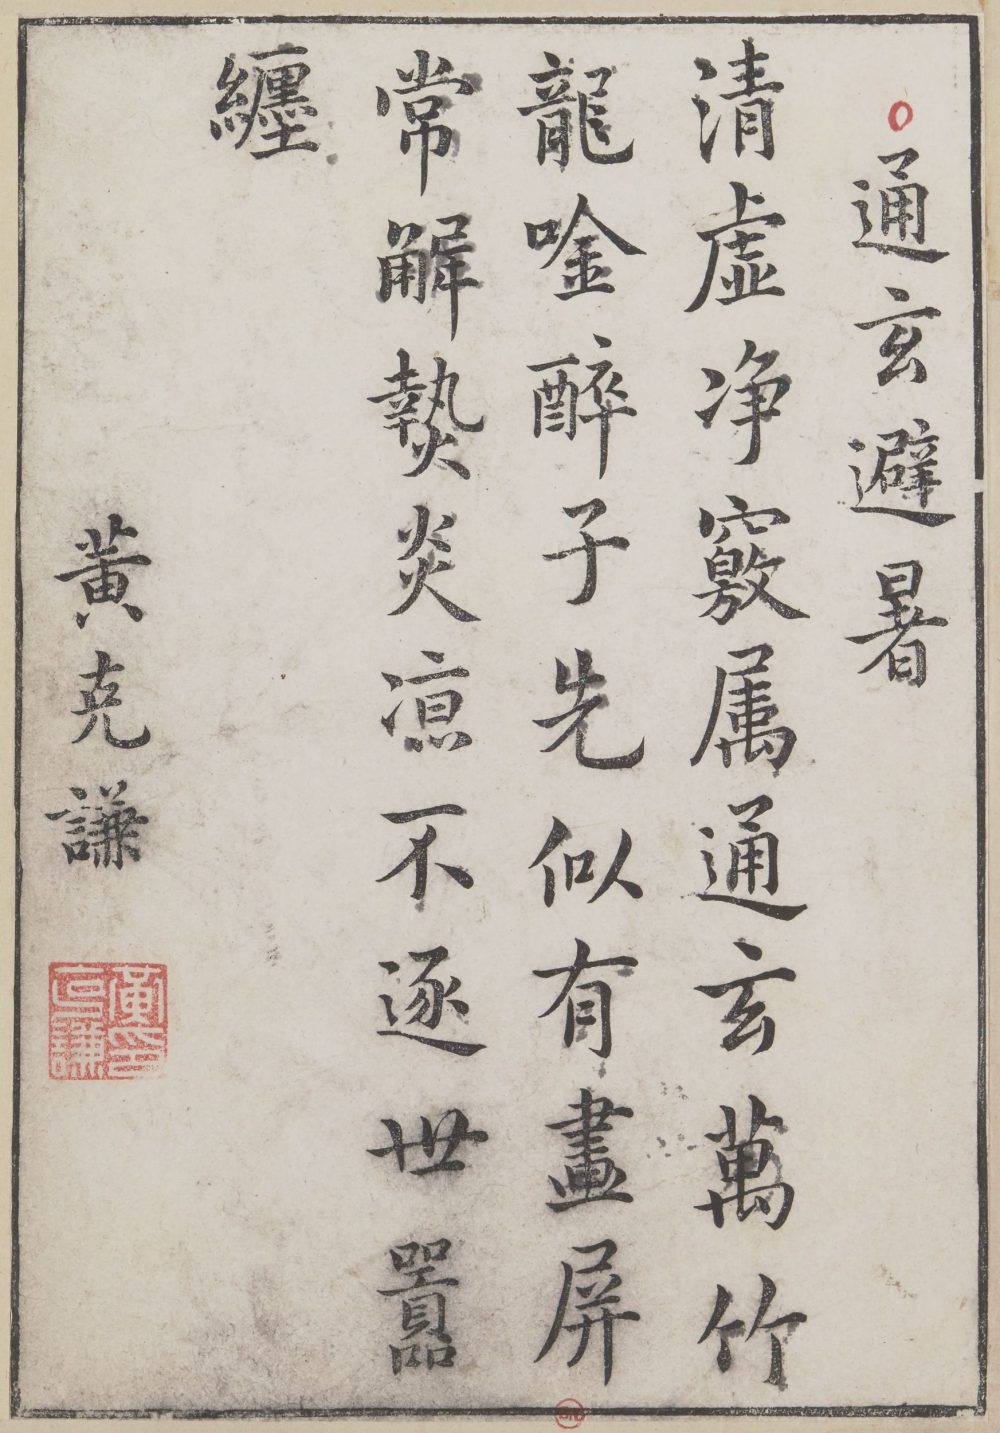 通玄避暑
清虛净竅属通玄萬竹
龍唫醉子先似有畫屏
常解𤍠炎凉不逐世囂
纏
黃克謙
黃克謙印